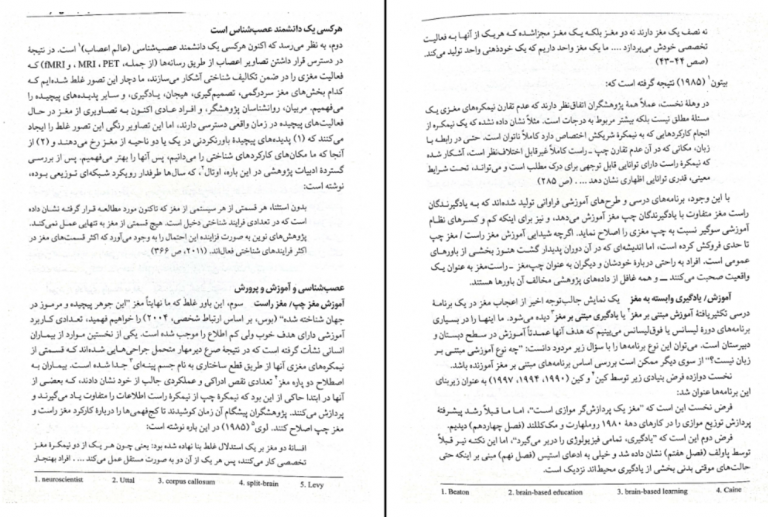 هرکسی یک دانشمند عصب‌شناس است
دوم، به نظر می‌رسد که اکنون هرکسی یک دانشمند عصب‌شناسی (عالم اعصاب)¹ است. در نتیجهٔ
در دسترس قرار داشتن تصاویر اعصاب از طریق رسانه‌ها (از جمله، MRI ، PET و fMRI) که
فعالیت مغزی را در ضمن تکالیف شناختی آشکار می‌سازند، ما دچار این تصور غلط شده‌ایم که
کدام بخش‌های مغز سردرگمی، تصمیم‌گیری، هیجان، یادگیری، و سایر پدیده‌های پیچیده را
می‌فهمیم. مربیان، روانشناسان پژوهشگر، و افراد عادی اکنون به تصاویری از مغز در حال
فعالیت‌های پیچیده در زمان واقعی دسترسی دارند، اما این تصاویر رنگی این تصور غلط را ایجاد
می‌کنند که (۱) پدیده‌های پیچیدهٔ باورنکردنی در یک یا دو ناحیه از مغز رخ می‌دهند و (۲) از
آنجا که ما مکان‌های کارکردهای شناختی را می‌دانیم، پس آنها را بهتر می‌فهمیم. پس از بررسی
گستردهٔ ادبیات پژوهشی در این باره، اوتال²، که سال‌ها طرفدار رویکرد شبکه‌ای توزیعی بوده،
نوشته است:
بدون استثنا، هر قسمتی از هر سیستمی از مغز که تاکنون مورد مطالعه قرار گرفته نشان داده
است که در تعدادی فرایند شناختی دخیل است. هیچ قسمتی از مغز به تنهایی عمل نمی‌کند.
پژوهش‌های نوین به صورت فزاینده این احتمال را به وجود می‌آورد که اکثر قسمت‌های مغز در
اکثر فرایندهای شناختی فعال‌اند. (۲۰۱۱، ص ۳۶۶)
عصب‌شناسی و آموزش و پرورش
آموزش مغز چپ/ مغز راست سوم، این باور غلط که ما نهایتاً مغز "این جوهر پیچیده و مرموز در
جهان شناخته شده" (بوس، بر اساس ارتباط شخصی، ۲۰۰۴) را خواهیم فهمید، تعدادی کاربرد
آموزشی دارای هدف خوب ولی کم اطلاع را موجب شده است. یکی از نخستین موارد از بیماران
انسانی نشأت گرفته است که در نتیجهٔ صرع دیرمهار متحمل جراحی‌هایی شده‌اند که قسمتی از
نیمکره‌های مغزی آنها از طریق قطع ساختاری به نام جسم پینه‌ای³ جدا شده است. بیماران به
اصطلاح دو پاره مغز⁴ تعدادی نقص ادراکی و عملکردی جالب از خود نشان دادند، که بعضی از
آنها در ابتدا حاکی از این بود که نیمکرهٔ چپ متفاوت از نیمکرهٔ راست اطلاعات را یاد می‌گیرند و
پردازش می‌کنند. پژوهشگران پیشگام آن زمان کوشیدند تا کج‌فهمی‌ها را دربارهٔ کارکرد مغز راست و
مغز چپ اصلاح کنند. لوی⁵ (۱۹۸۵) در این باره نوشته است:
افسانهٔ دو مغز بر یک استدلال غلط بنا نهاده شده بود: یعنی چون هر یک از دو نیمکرهٔ مغز
تخصصی کار می‌کنند، پس هر یک از آن دو به صورت مستقل عمل می‌کند ... . افراد بهنجار
1. neuroscientist 2. Uttal 3. corpus callosum 4. split-brain 5. Levy
نه نصف یک مغز دارند نه دو مغز بلکه یک مغز مجزاشده که هر یک از آنها به فعالیت
تخصصی خودش می‌پردازد .... ما یک مغز واحد داریم که یک خودذهنی واحد تولید می‌کند.
(صص ۴۴-۴۳)
بیتون¹ (۱۹۸۵) نتیجه گرفته است که:
در وهلهٔ نخست، عملاً همهٔ پژوهشگران اتفاق‌نظر دارند که عدم تقارن نیمکره‌های مغزی یک
مسئله مطلق نیست بلکه بیشتر مربوط به درجات است. مثلاً نشان داده نشده که یک نیمکره از
انجام کارکردهایی که به نیمکرهٔ شریکش اختصاص دارد کاملاً ناتوان است. حتی در رابطه با
زبان، مکانی که در آن عدم تقارن چپ ـ راست کاملاً غیرقابل اختلاف‌نظر است، آشکار شده
که نیمکرهٔ راست دارای توانایی قابل توجهی برای درک مطلب است و می‌تواند، تحت شرایط
معینی، قدری توانایی اظهاری نشان دهد ... . (ص ۲۸۵)
با این وجود، برنامه‌های درسی و طرح‌های آموزشی فراوانی تولید شده‌اند که به یادگیرندگان
راست مغز متفاوت با یادگیرندگان چپ مغز آموزش می‌دهد، و نیز برای اینکه کم و کسرهای نظام
آموزشی سوگیر نسبت به چپ مغزی را اصلاح نماید. اگرچه شیدایی آموزش مغز راست / مغز چپ
تا حدی فروکش کرده است، اما اندیشه‌ای که در آن دوران پدیدار گشت هنوز بخشی از باورهای
عمومی است. افراد به راحتی دربارهٔ خودشان و دیگران به عنوان چپ‌مغز ـ راست‌مغز به عنوان یک
واقعیت صحبت می‌کنند ـ و همه غافل از داده‌های پژوهشی مخالف آن باورها هستند.
آموزش/ یادگیری وابسته به مغز یک نمایش جالب‌توجه اخیر از اعجاب مغز در یک برنامهٔ
درسی تکثیریافتهٔ آموزش مبتنی بر مغز² یا یادگیری مبتنی بر مغز³ دیده می‌شود. ما اینها را در بسیاری
برنامه‌های دورهٔ لیسانس یا فوق‌لیسانس می‌بینیم که هدف آنها عمدتاً آموزش در سطح دبستان و
دبیرستان است. می‌توان این نوع برنامه‌ها را با سؤال زیر مردود دانست: "چه نوع آموزشی مبتنی بر
زبان نیست؟" از سوی دیگر ممکن است بررسی اساس برنامه‌های مبتنی بر مغز آموزنده باشد.
نخست دوازده فرض بنیادی زیر توسط کین⁴ و کین (۱۹۹۰، ۱۹۹۴، ۱۹۹۷) به عنوان زیربنای
این برنامه‌ها عنوان شد:
فرض نخست این است که "مغز یک پردازش‌گر موازی است"، اما ما قبلاً رشد پیشرفتهٔ
پردازش توزیع موازی را در کارهای دههٔ ۱۹۸۰ روملهارت و مک‌کللند (فصل چهاردهم) دیدیم.
فرض دوم این است که "یادگیری، تمامی فیزیولوژی را دربر می‌گیرد"، اما این نکته نیز قبلاً
توسط پاولف (فصل هفتم) نشان داده شد و خیلی به ادعای استیس (فصل نهم) مبنی بر اینکه حتی
حالت‌های موقتی بدنی بخشی از یادگیری محیط‌اند نزدیک است.
1. Beaton 2. brain-based education 3. brain-based learning 4. Caine